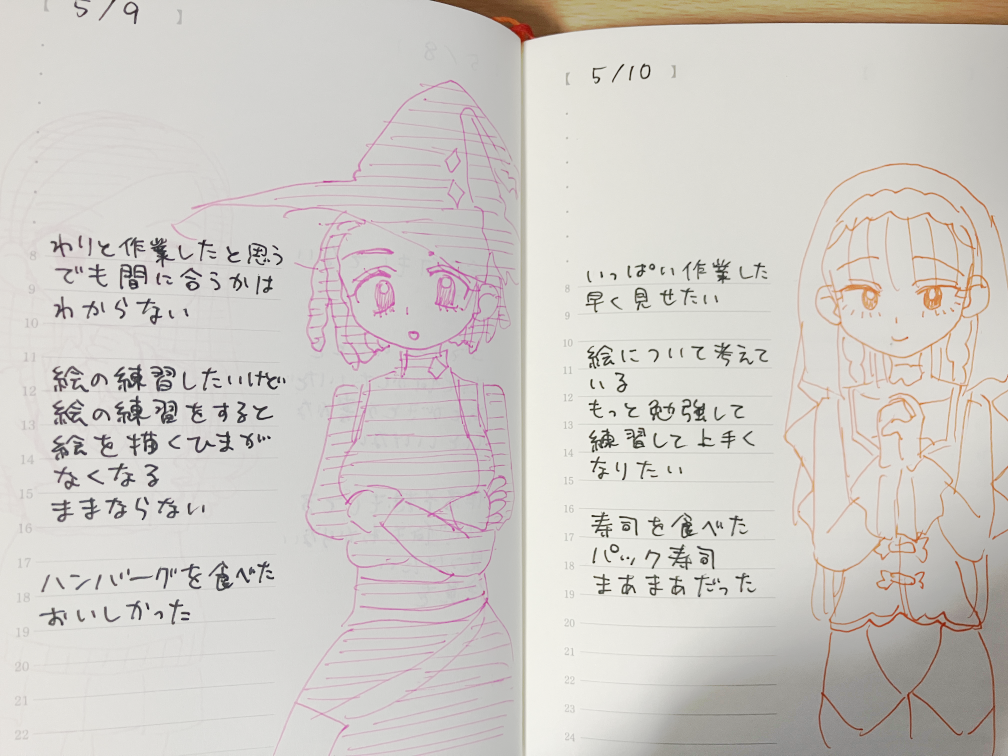 [ 5/9 ]
わりと作業したと思う
でも間に合うかは
わからない
絵の練習したいけど
絵の練習をすると
絵を描くひまが
なくなる
ままならない
ハンバーグを食べた
おいしかった
8
9
10
11
12
13
14
15
16
17
18
19
20
21
22
[ 5/10 ]
いっぱい作業した
早く見せたい
絵について考えて
いる
もっと勉強して
練習して上手く
なりたい
寿司を食べた
パック寿司
まあまあだった
8
9
10
11
12
13
14
15
16
17
18
19
20
21
22
23
24